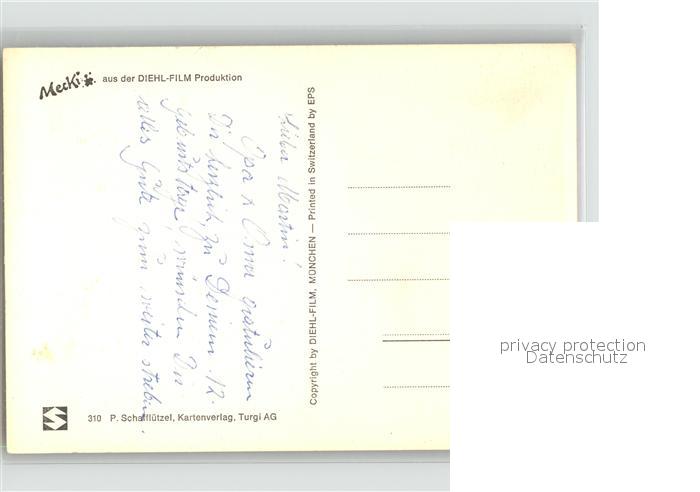 Mecki aus der DIEHL-FILM Produktion
Lieber Martin!
Opa & Oma gratulieren
Dir herzlich zu Deinem 12.
Geburtstage, wünschen Dir
alles Gute zum weiter streben.
Copyright by DIEHL-FILM, MÜNCHEN — Printed in Switzerland by EPS
310 P. Schafflützel, Kartenverlag, Turgi AG
privacy protection
Datenschutz